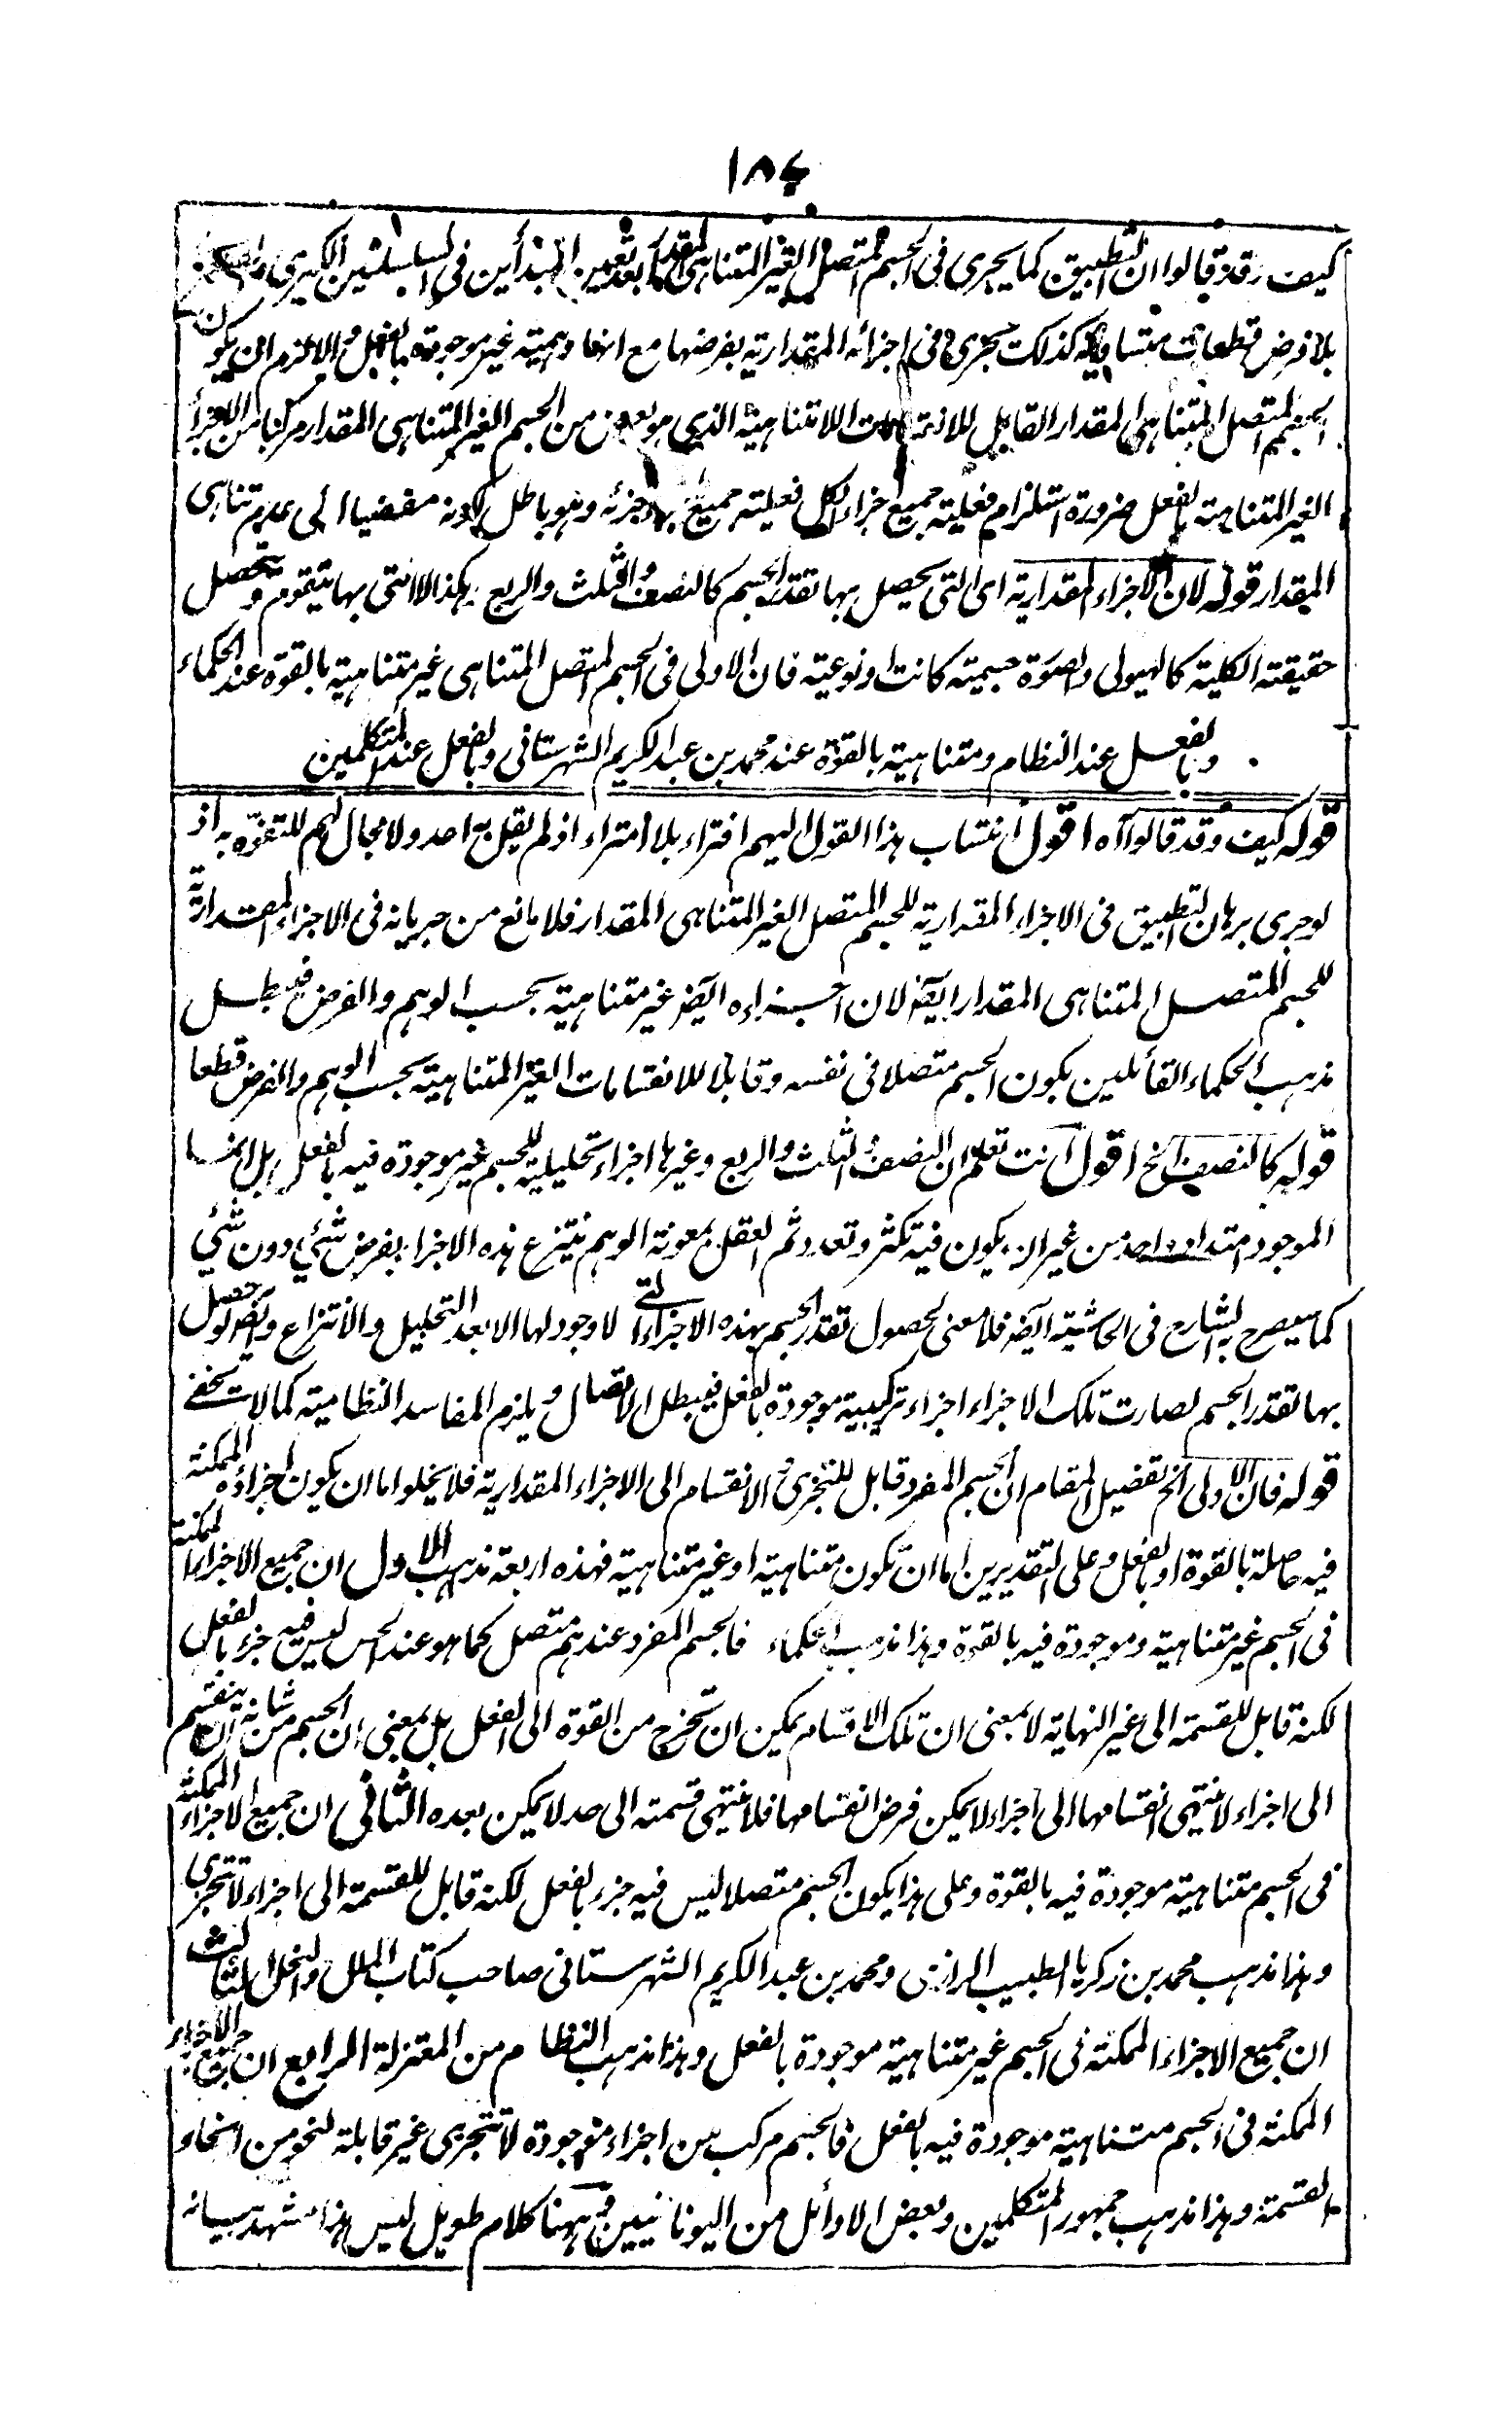 ١٨٤
كيف وقد قالوا ان التطبيق كما يجرى فى الجسم المتصل الغير المتناهى المقدار بعد تعيين المبدأين فى السلسلتين الكبرى
بلا فرض قطعات متساوية كذلك يجرى فى اجزائه المقدارية بفرضها مع انها وهمية غير موجودة بالفعل والا لزم ان يكون
الجسم المتصل المتناهى المقدار القابل للانقسامات اللامتناهية الذى هو بعض من الجسم الغير المتناهى المقدار مركبا من الاجزاء
الغير المتناهية بالفعل ضرورة استلزام فعلية جميع اجزاء الكل فعلية جميع اجزاء جزئه وهو باطل لكونه مفضيا الى عدم تناهى
المقدار قوله لان الاجزاء المقدارية اى التى يحصل بها تقدر الجسم كالنصف والثلث والربع هكذا لا التى بها يتقوم وتحصل
حقيقته الكلية كالهيولى والصورة جسمية كانت او نوعية فان الاولى فى الجسم المتصل المتناهى غير متناهية بالقوة عند الحكماء
وبالفعل عند النظام ومتناهية بالقوة عند محمد بن عبد الكريم الشهرستانى وبالفعل عند المتكلمين
قوله كيف وقد قالوا آه اقول انتساب هذا القول اليهم افتراء بلا امتراء اذ لم يقل به احد ولا مجال لهم للتفوه به اذ
لو جرى برهان التطبيق فى الاجزاء المقدارية للجسم المتصل الغير المتناهى المقدار فلا مانع من جريانه فى الاجزاء المقدارية
للجسم المتصل المتناهى المقدار ايضا لان اجزاءه ايضا غير متناهية بحسب الوهم والفرض فيبطل
مذهب الحكماء القائلين بكون الجسم متصلا فى نفسه وقابلا للانقسامات الغير المتناهية بحسب الوهم والفرض قطعا
قوله كالنصف الخ اقول انت تعلم ان النصف والثلث والربع وغيرها اجزاء تحليلية للجسم غير موجودة فيه بالفعل بل انما
الموجود امتداد واحد من غير ان يكون فيه تكثر وتعدد ثم العقل بمعونة الوهم ينتزع هذه الاجزاء بفرض شئ دون شئ
كما سيصرح به الشارح فى الحاشية ايضا فلا معنى لحصول تقدر الجسم بهذه الاجزاء التى لا وجود لها الا بعد التحليل والانتزاع وايضا لو حصل
بها تقدر الجسم لصارت تلك الاجزاء اجزاء تركيبية موجودة بالفعل فيبطل الاتصال ويلزم المفاسد النظامية كما لا تخفى
قوله فان الاولى الخ تفضيل المقام ان الجسم المفرد قابل للتجزى والانقسام الى الاجزاء المقدارية فلا يخلو اما ان يكون اجزاؤه الممكنة
فيه حاصلة بالقوة او بالفعل وعلى التقديرين اما ان تكون متناهية او غير متناهية فهذه اربعة مذاهب الاول ان جميع الاجزاء الممكنة
فى الجسم غير متناهية وموجودة فيه بالقوة وهذا مذهب الحكماء فالجسم المفرد عندهم متصل كما هو عند الحس ليس فيه جزء بالفعل
لكنه قابل للقسمة الى غير النهاية لا بمعنى ان تلك الاقسام يمكن ان تخرج من القوة الى الفعل بل بمعنى ان الجسم من شانه ان ينقسم
الى اجزاء لا ينتهى انقسامها الى اجزاء لا يمكن فرض انقسامها فلا ينتهى قسمته الى حد لا يمكن بعده الثانى ان جميع الاجزاء الممكنة
فى الجسم متناهية موجودة فيه بالقوة وعلى هذا يكون الجسم متصلا ليس فيه جزء بالفعل لكنه قابل للقسمة الى اجزاء لا تتجزى
وهذا مذهب محمد بن زكريا الطبيب الرازى ومحمد بن عبد الكريم الشهرستانى صاحب كتاب الملل والنحل الثالث
ان جميع الاجزاء الممكنة فى الجسم غير متناهية موجودة بالفعل وهذا مذهب النظام من المعتزلة الرابع ان جميع الاجزاء
الممكنة فى الجسم متناهية موجودة فيه بالفعل فالجسم مركب من اجزاء موجودة لا تتجزى غير قابلة لنحو من انحاء
القسمة وهذا مذهب جمهور المتكلمين وبعض الاوائل من اليونانيين وههنا كلام طويل ليس هذا مشهد بيانه